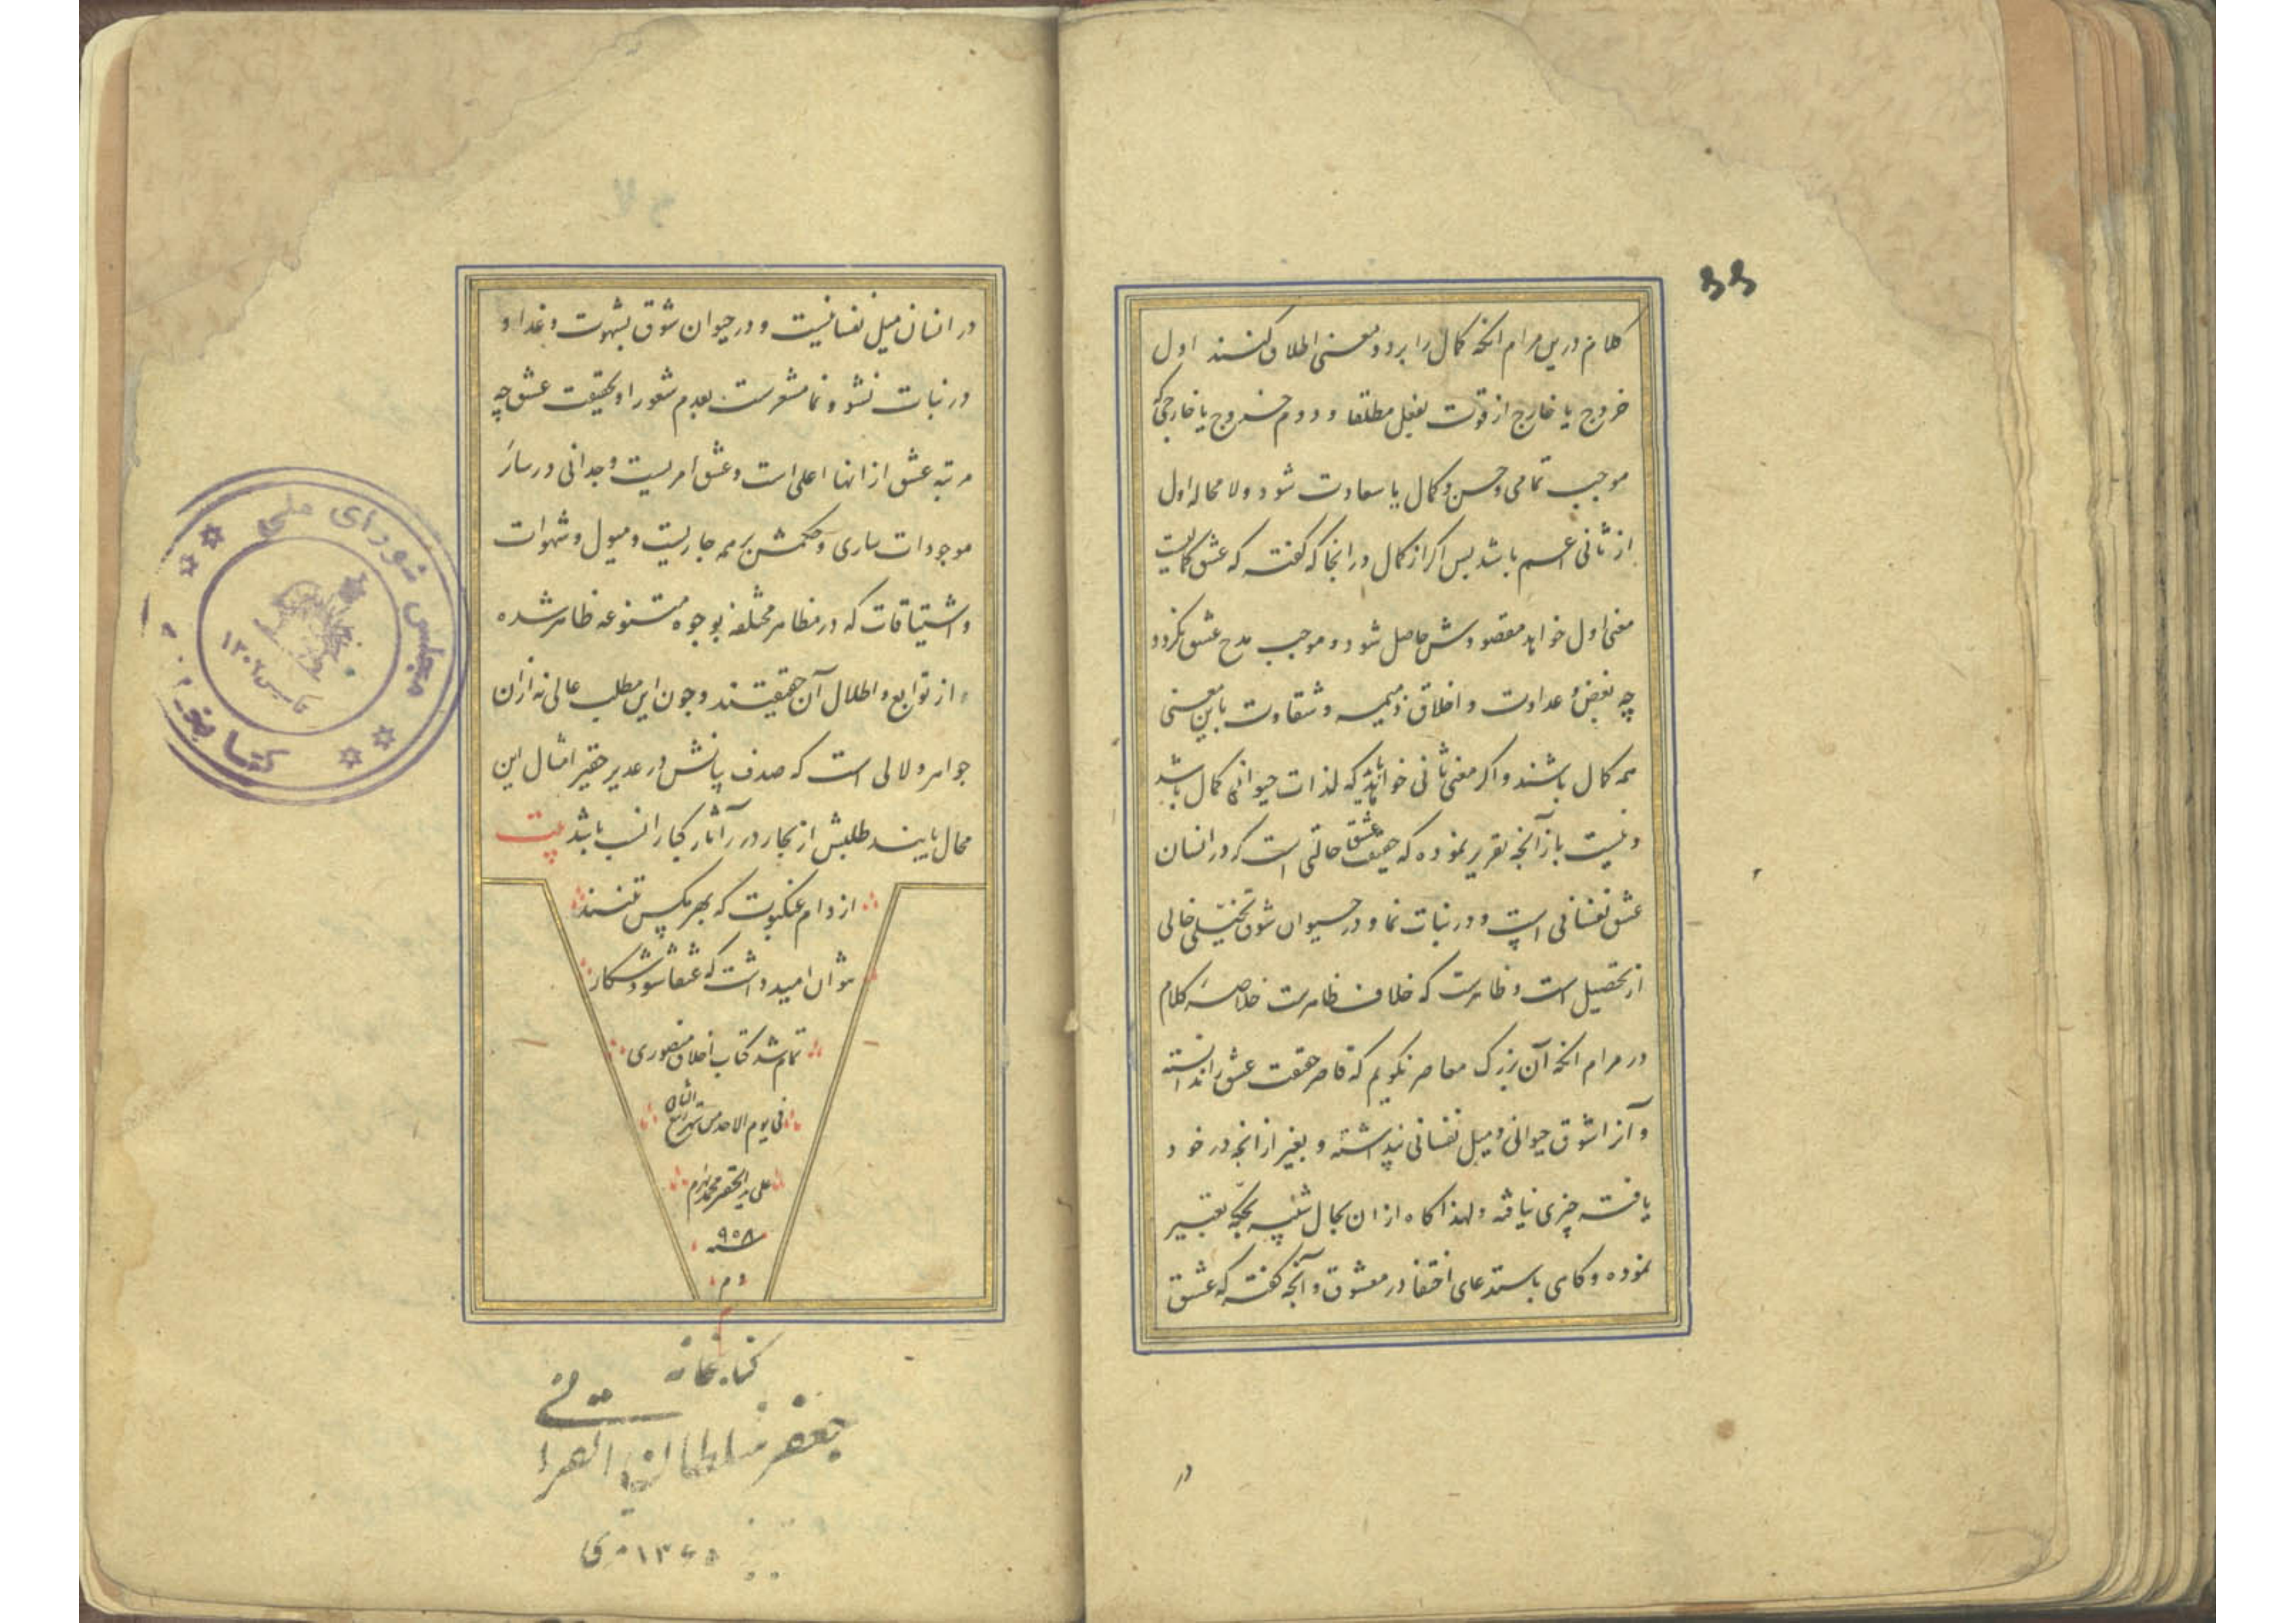 کلام درین مرام انکه کمال را بر دو معنی اطلاق کنند اول
خروج یا خارج از قوت بفعل مطلقا و دوم خروج یا خارجی که
موجب تمامی و حسن و کمال یا سعادت شود و لا محاله اول
از ثانی اعم باشد بس اکر از کمال در انجا که کفته که عشق کمالیست
معنی اول خواهد مقصودش حاصل شود و موجب مدح عشق نکردد
چه بغض و عداوت و اخلاق ذمیمه و شقاوت باین معنی
همه کمال باشند و اکر معنی ثانی خواهد باید که لذات حیوانی کمال باشد
و نیست باز آنچه تقریر نموده که حقیقت عشق حالتی است که در انسان
عشق نفسانی است و در نبات نما و در حیوان شوق تخیلی خالی
از تحصیل است و ظاهرست که خلاف ظاهرست خلاصه کلام
در مرام انکه آن بزرک معاصر نکویم که قاصر حقیقت عشق را ندانسته
و آنرا شوق حیوانی و میل نفسانی پنداشته و بغیر از انچه در خود
یافته چیزی نیافته و لهذا کاه از ان بحال شبیه بحکه تعبیر
نموده و کاهی باستدعای اختفا در معشوق و آنچه کفته که عشق
در
در انسان میل نفسانیست و در حیوان شوق بشهوت و غدا و
در نبات نشو و نما مشعرست بعدم شعور او بحقیقت عشق چه
مرتبه عشق از انها اعلی است و عشق امریست وجدانی در سائر
موجودات ساری و حکمش بر همه جاریست و میول و شهوات
و اشتیاقات که در مظاهر مختلفه بوجوه متنوعه ظاهر شده
از توابع و اطلال آن حقیقتند و چون این مطلب عالی نه ازان
جواهر و لالی است که صدف پانش در غدیر حقیر امثال این
محال یابند طلبش از بحار در آثار کبار انسب باشد بیت
از دام عنکبوت که بهر مکس تنند
نتوان امید داشت که عنقا شود شکار
تمام شد کتاب اخلاق منصوری
فی یوم الاحد من شهر ربیع الثانی
علی ید الحقیر محمد
سنه ۹۵۸
م
کتابخانه
جعفر سلطان القرائی
۱۳۴۵ قمری
مجلس شورای ملی
کتابخانه
تاسیس ۱۳۰۲